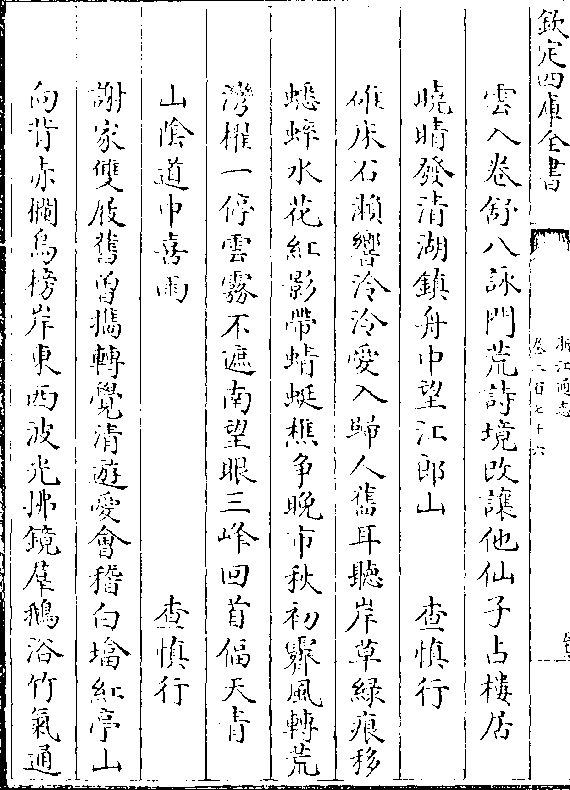 欽定四庫全書
浙江通志
卷二百七十六
雲入卷舒八詠門荒詩境改讓他仙子占樓居
曉晴發清湖鎮舟中望江郎山 查慎行
碓床石瀨響泠泠愛入歸人舊耳聽岸草綠痕移
蟋蟀水花紅影帶蜻蜓樵爭晚市秋初霽風轉荒
灣櫂一停雲霧不遮南望眼三峰回首偪天青
山陰道中喜雨 查慎行
謝家雙屐舊曾攜轉覺清遊愛會稽白墖紅亭山
向背赤欄烏榜岸東西波光拂鏡羣鵝浴竹氣通